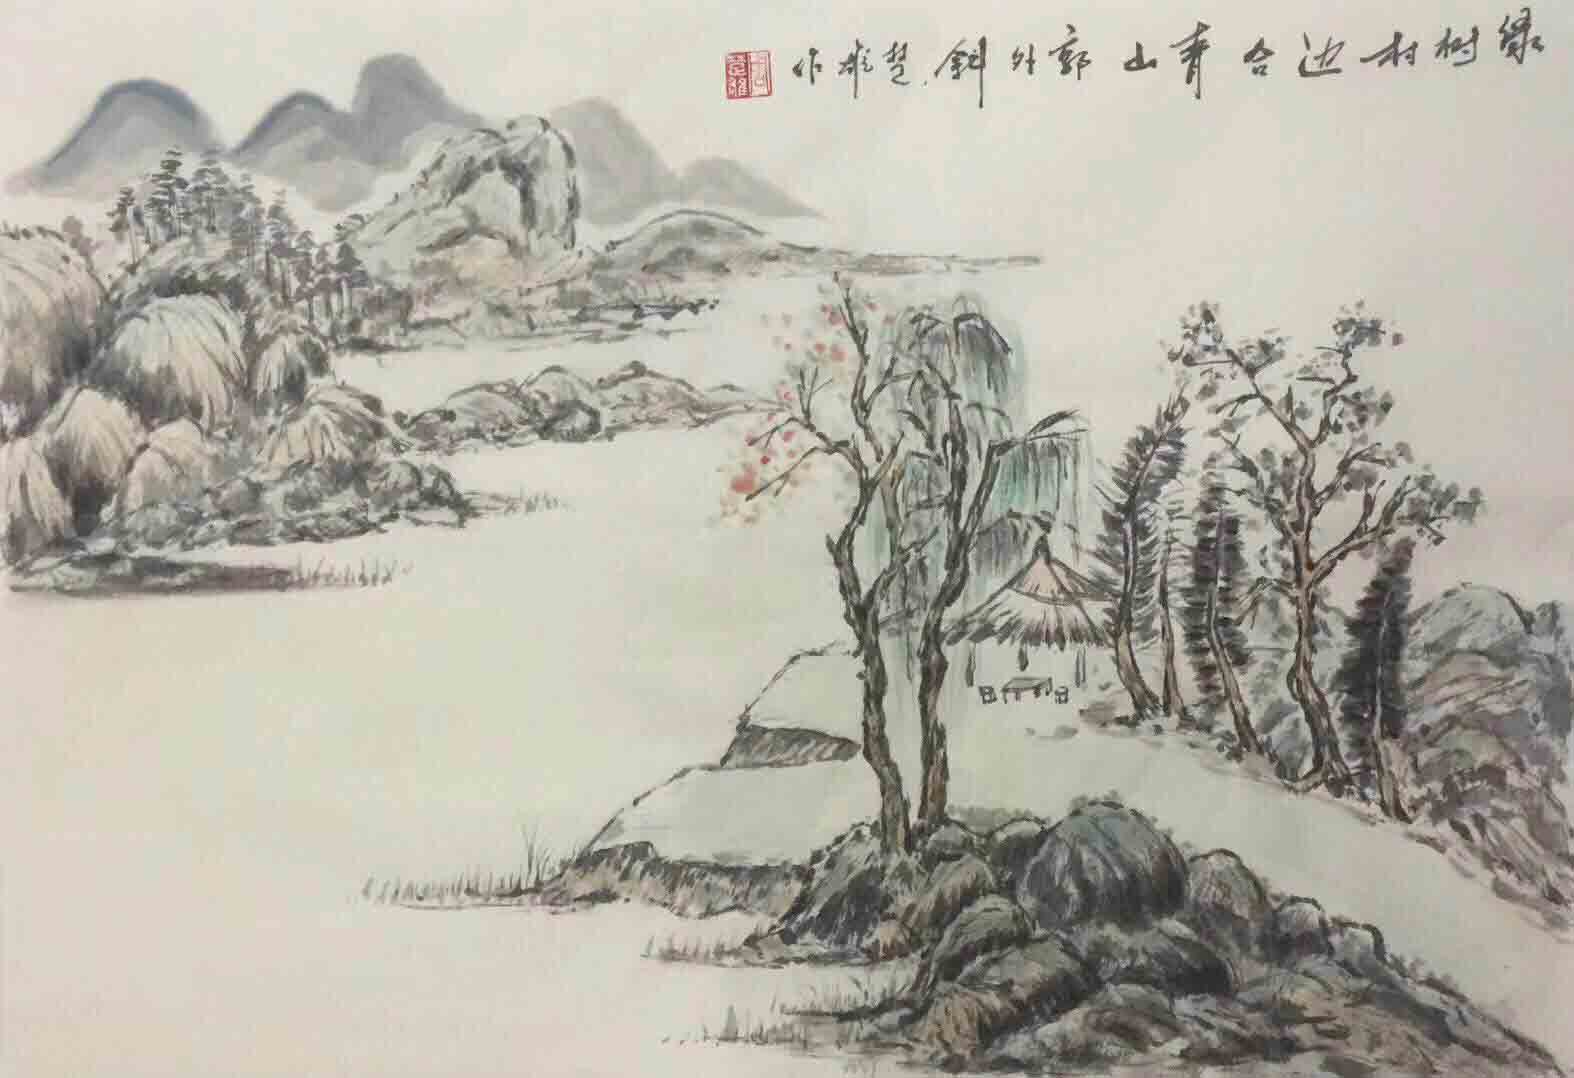 绿树村边合青山郭外斜楚彪作